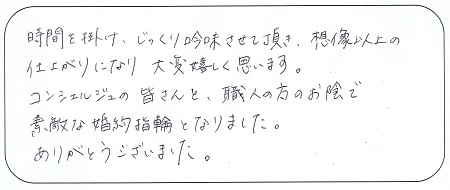 時間を掛け、じっくり吟味させて頂き、想像以上の
仕上がりになり 大変嬉しく思います。
コンシェルジュの 皆さんと、職人の方のお陰で
素敵な婚約指輪となりました。
ありがとうございました。